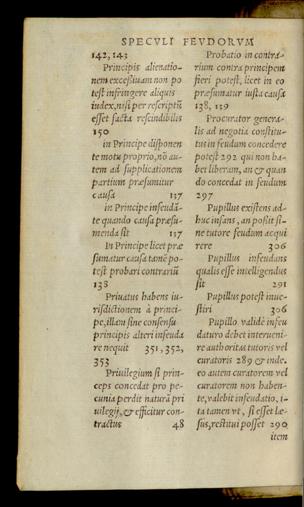 SPECVLI FEVDORVM
142, 143
Principis alienatio-
nem excessiuam non po
test infringere aliquis
iudex, nisi per rescriptũ
esset facta rescindibilis
150
in Principe disponen
te motu proprio, nõ au-
tem ad supplicationem
partium præsumitur
causa 137
in Principe infeudã-
te quando causa præsu-
menda sit 137
In Principe licet præ
sumatur causa tamẽ po-
test probari contrariũ
138
Priuatus habens iu-
risdictionem à princi-
pe, illam sine consensu
principis alteri infeuda
re nequit 351, 352,
353
Priuilegium si prin-
ceps concedat pro pe-
cunia perdit naturã pri
uilegij, & efficitur con-
tractus 48
Probatio in contra-
rium contra principem
fieri potest, licet in eo
præsumatur iusta causa
138, 139
Procurator genera-
lis ad negotia constitu-
tus in feudum concedere
potest 292 qui non ha-
bet liberam, an & quan
do concedat in feudum
297
Pupillus existens ad-
huc infans, an possit si-
ne tutore feudum acqui
rere 306
Pupillus infeudans
qualis esse intelligendus
sit 291
Pupillus potest inue-
stiri 306
Pupillo validè infeu
daturo debet interueni-
re authoritas tutoris vel
curatoris 289 & inde.
eo autem curatorem vel
curatorem non haben-
te, valebit infeudatio, i-
ta tamen vt, si esset læ-
sus, restitui posset 290
item